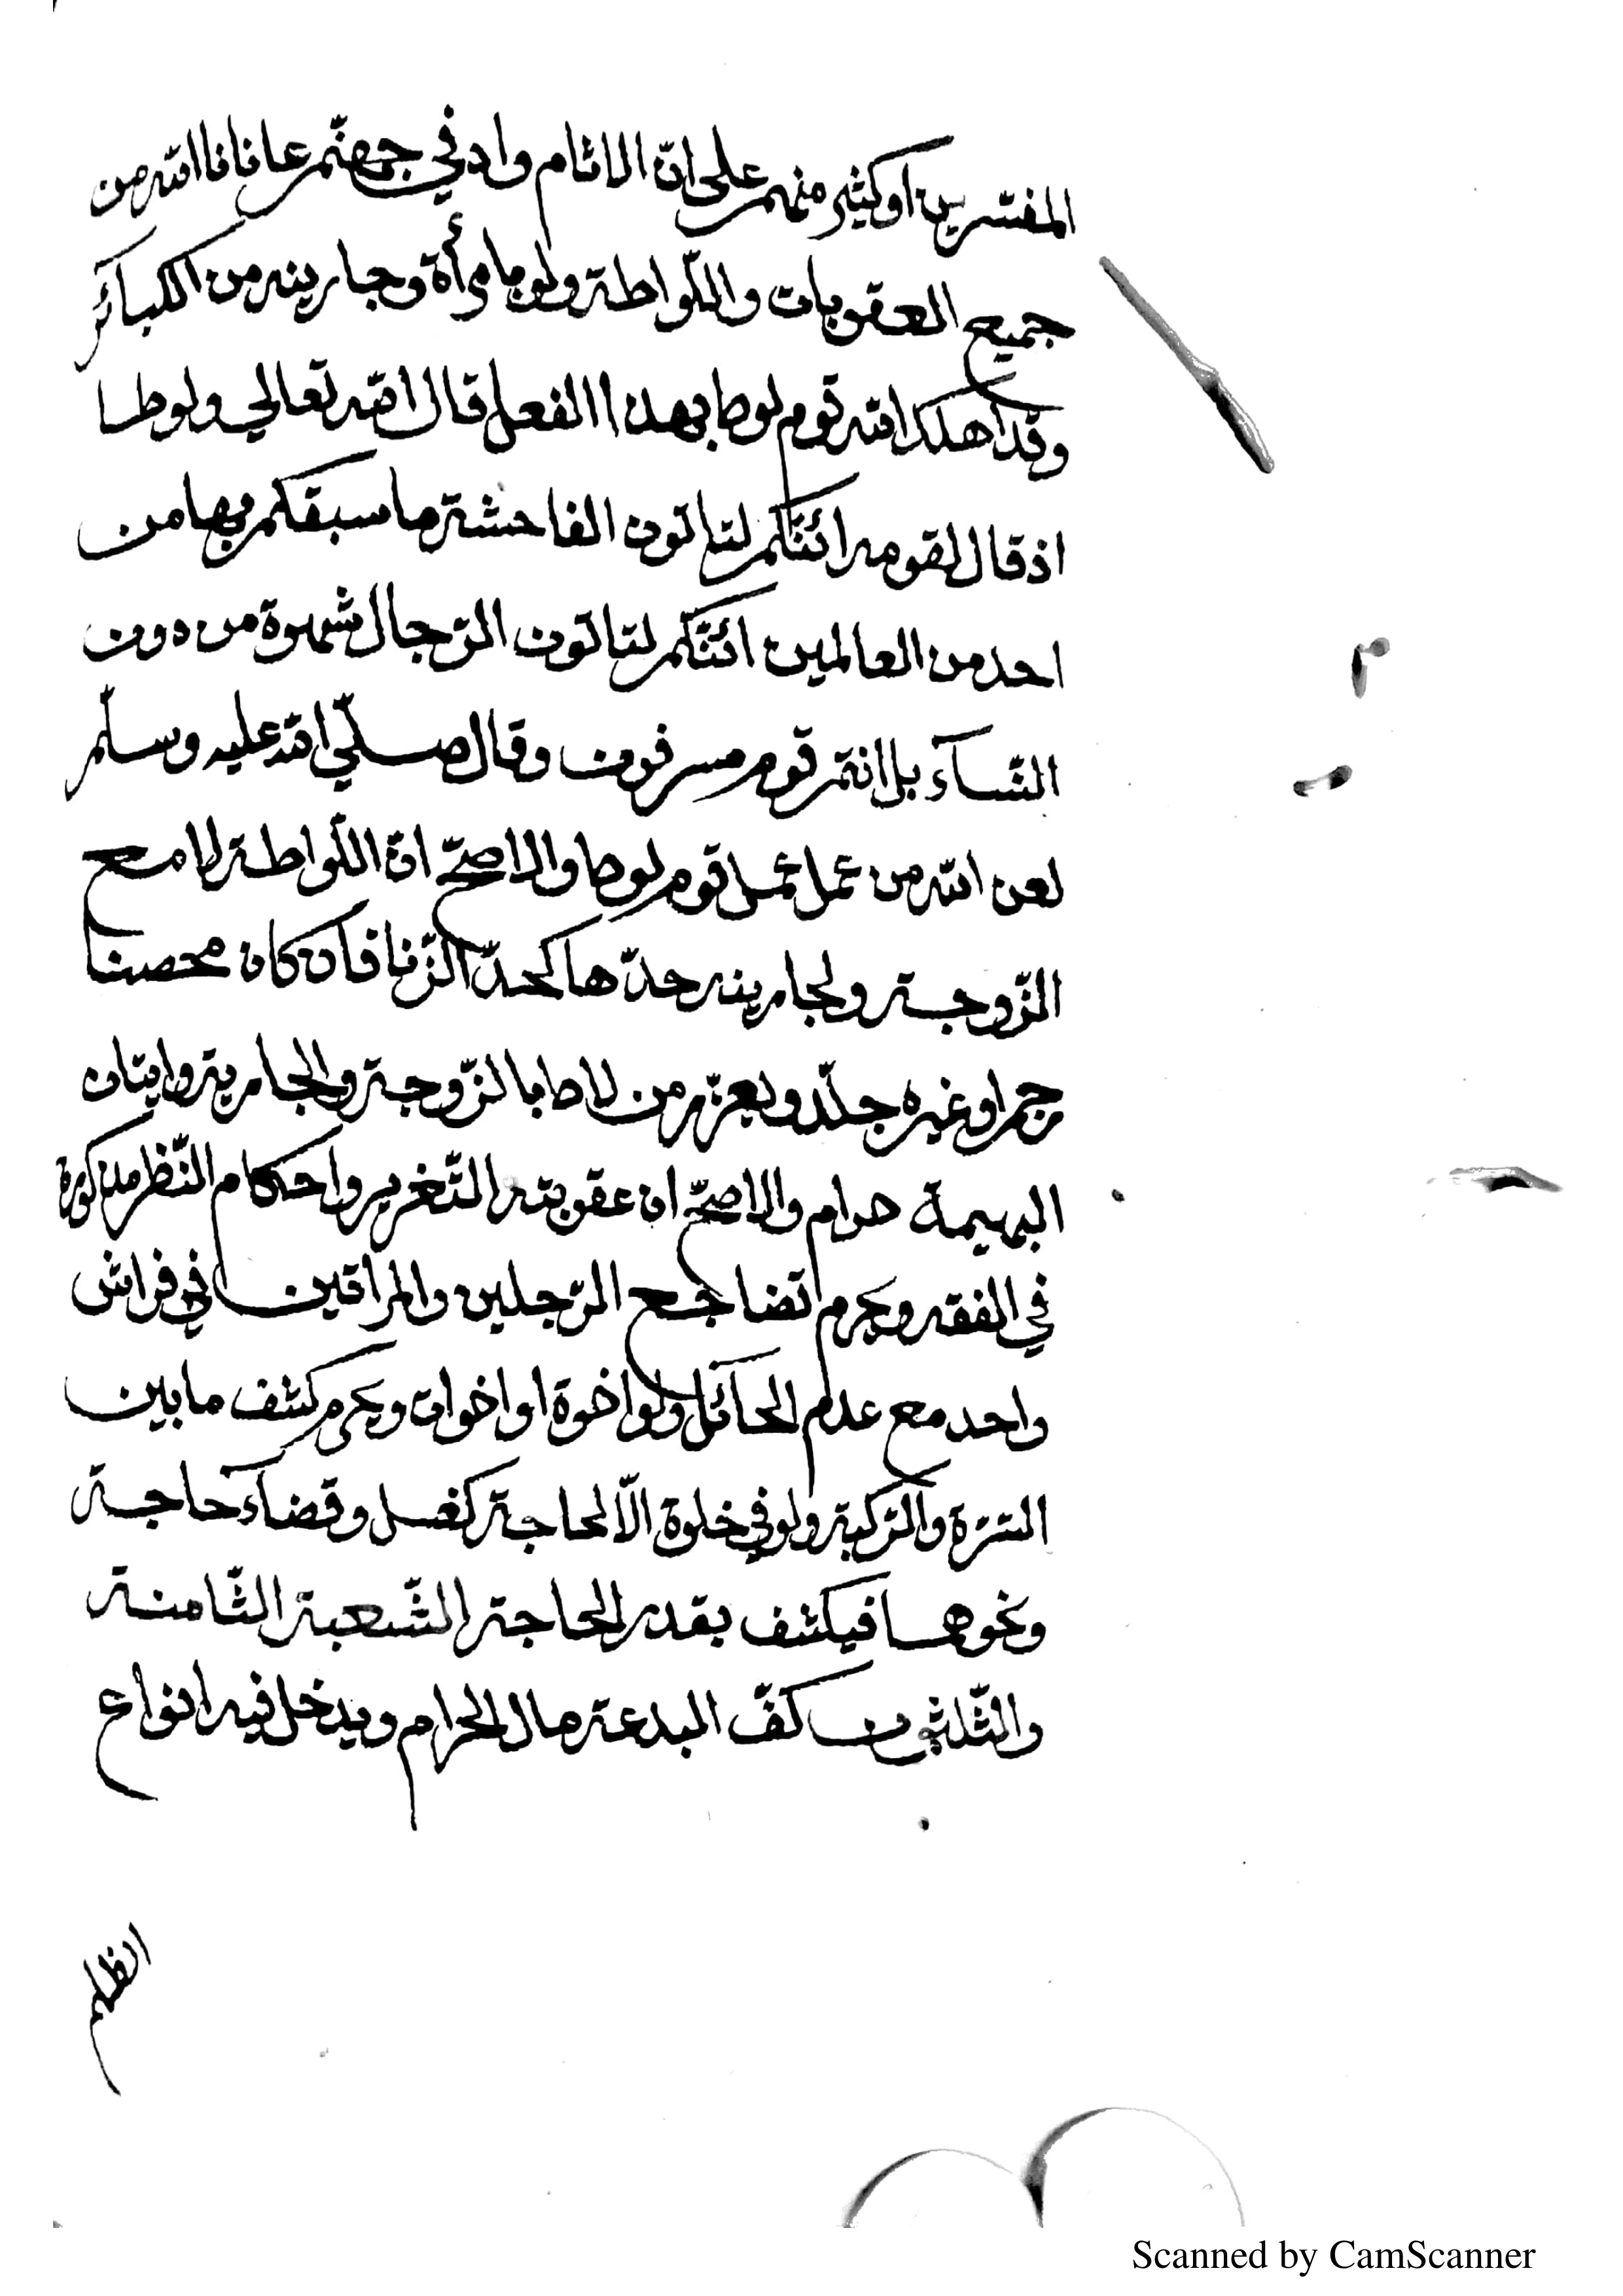 المفسّرين او كثير منهم على انّ الاثام واد في جهنّم عافانا الله من
جميع العقوبات واللّواطة ولو بامرأة وجاريته من الكبائر
وقد اهلك الله قوم لوط بهذا الفعل قال الله تعالي ولوطا
اذ قال لقومه ائنّكم لتاتون الفاحشة ما سبقكم بها من
احد من العالمين ائنّكم لتاتون الرّجال شهوة من دون
النّساء بل انتم قوم مسرفون وقال صلّي الله عليه وسلّم
لعن الله من عمل عمل قوم لوط والاصحّ انّ اللّواطة لا مع
الزّوجة ولجاريته حدّها كحدّ الزّنا فان كان محصنا
رجم او غيره جلّد ويعزّر من لاط بالزّوجة والجارية واتيان
البهيمة حرام والاصحّ ان عقوبته التّغرير واحكام النّظر مذكورة
في الفقه ويحرم اتضاجع الرّجلين والمراتين في فراش
واحد مع عدم الحائل ولو اخوة او اخوات ويحرم كشف ما بين
السّرّة والرّكبة ولو في خلوة الّا لحاجة كغسل وقضاء حاجة
ونحوها فيكشف بقدر الحاجة الشّعبة الثّامنة
والثّلثون كفّ البدعة مال الحرام ويدخل فيه انواع
الظلم
Scanned by CamScanner